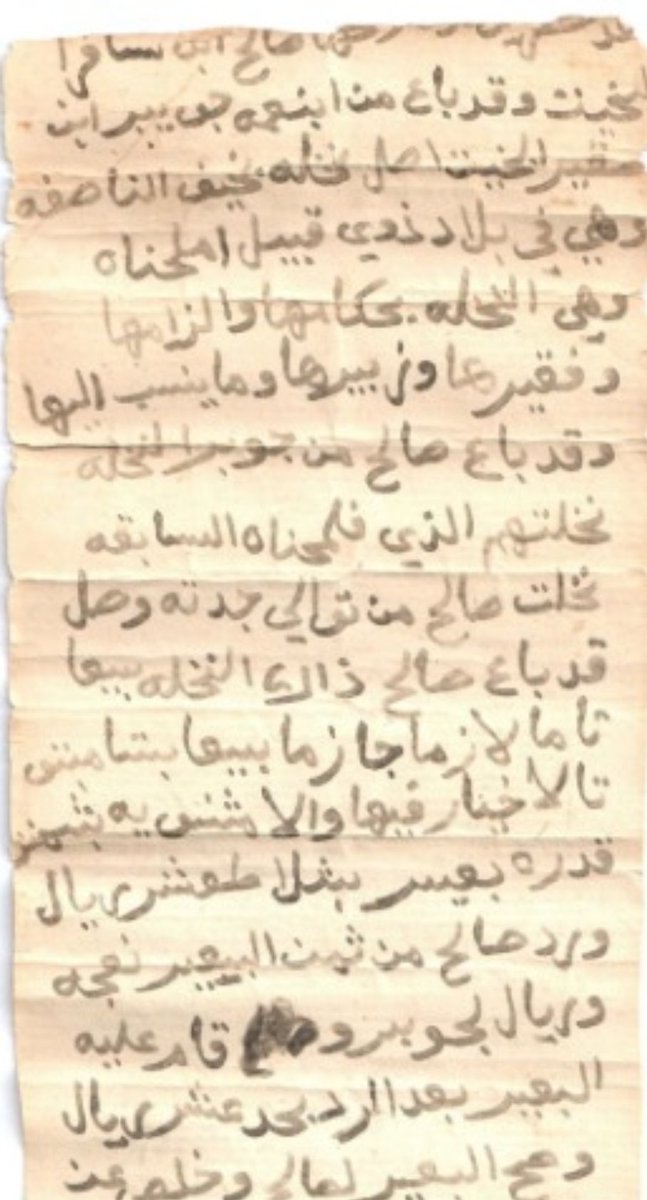 صالح ابن سافر
لخيت وقد باع من ابنعمه جويبر ابن
صقير الخيت اصل نخله بخيف الناصفه
وهي في بلاد ذوي قبيل املحناه
وهي النخله بحكامها والزامها
وفقيرها وزبيرها وما ينسب اليها
وقد باع صالح من جوبر النخله
نخلتهم الذي فلمحناه السابقه
نخلت صالح من توالي جدته وصل
قد باع صالح ذالك النخله بيعا
تاما لازما جازما بيعا بتا
تالا خيار فيها والا يه بثمن
قدره بعير بثلاطعشر يال
ورد صالح من ثمن البعير نعجه
وريال لجوبر قام عليه
البعير بعد الرد بحد عشر يال
وصح البعير لصالح وخلص عن